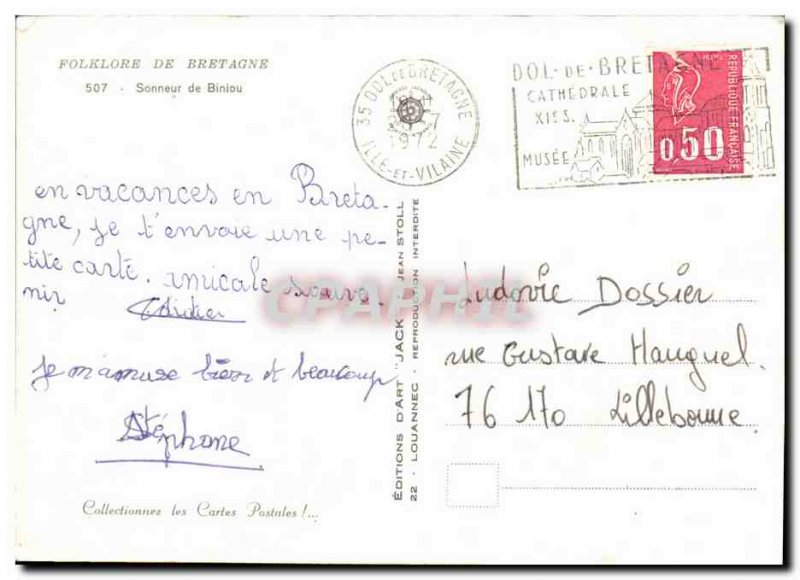 FOLKLORE DE BRETAGNE
507 - Sonneur de Biniou
en vacances en Breta-
gne, je t'envoie une pe-
tite carte. amicale souve-
nir
Didier
Je m'amuse bien et beaucoup
Stéphane
Collectionnez les Cartes Postales !...
35 DOL DE BRETAGNE
7
1972
ILLE-ET-VILAINE
DOL-DE-BRETAGNE
CATHEDRALE
XIIIe S.
MUSÉE
REPUBLIQUE FRANÇAISE
0,50
EDITIONS D'ART "JACK" JEAN STOLL
22 - LOUANNEC - REPRODUCTION INTERDITE
CPAPHIL
Ludovic Dossier
rue Gustave Hauguel.
76 170 Lillebonne.